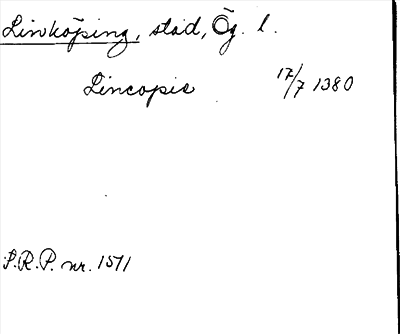 Linköping, stad, Ög. l.
Lincopie 17/7 1380
S.R.P. nr. 1571